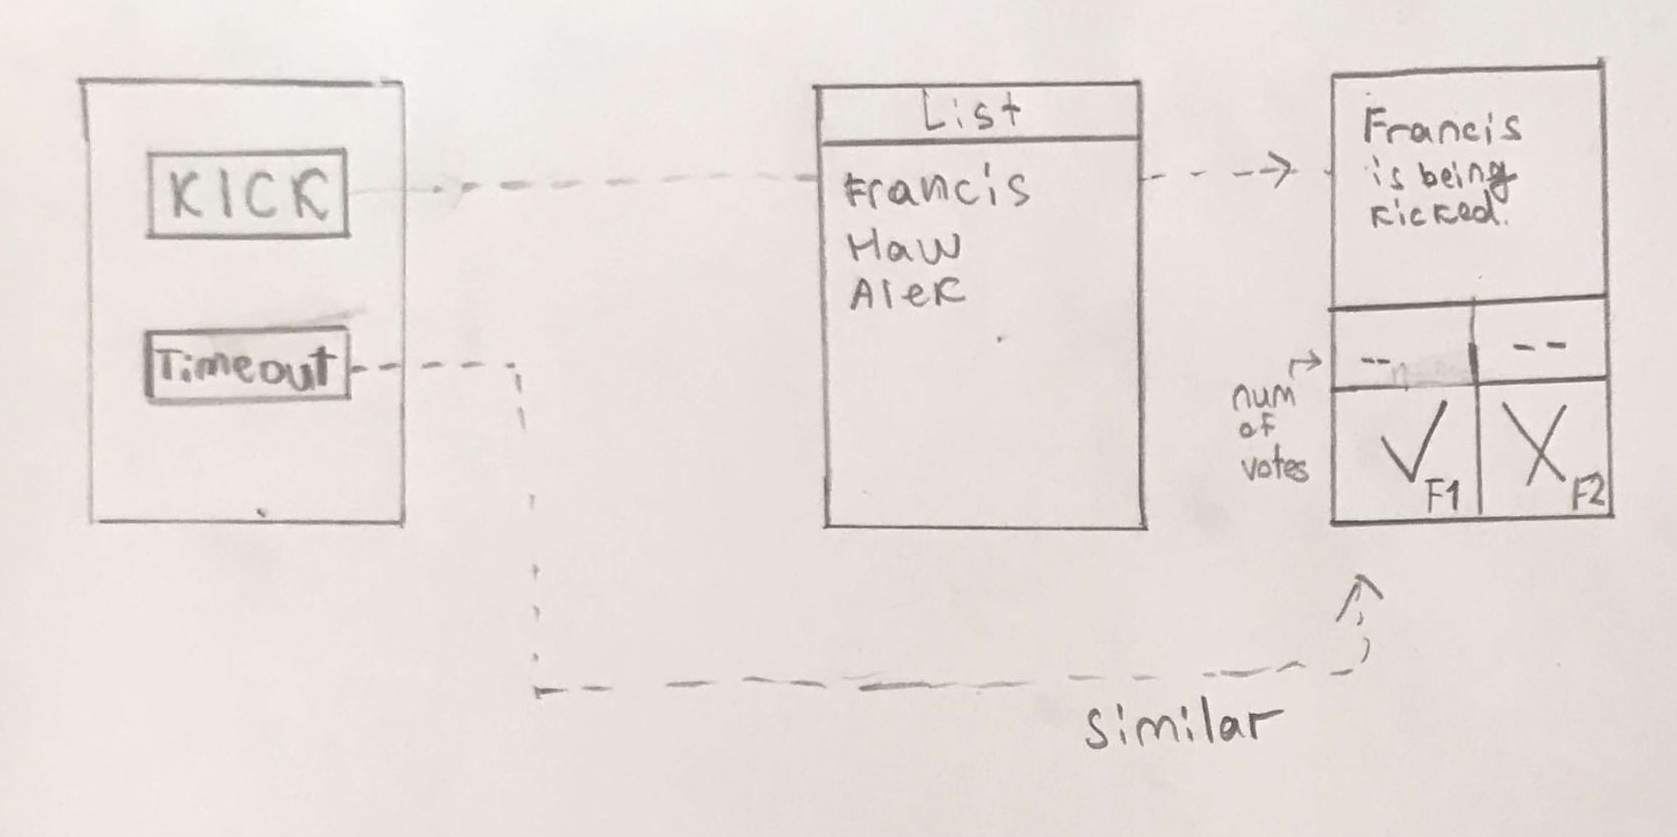 KICK
Timeout
List
Francis
Haw
Alek
Francis
is being
kicked.
num
of
votes
-- --
F1
F2
similar